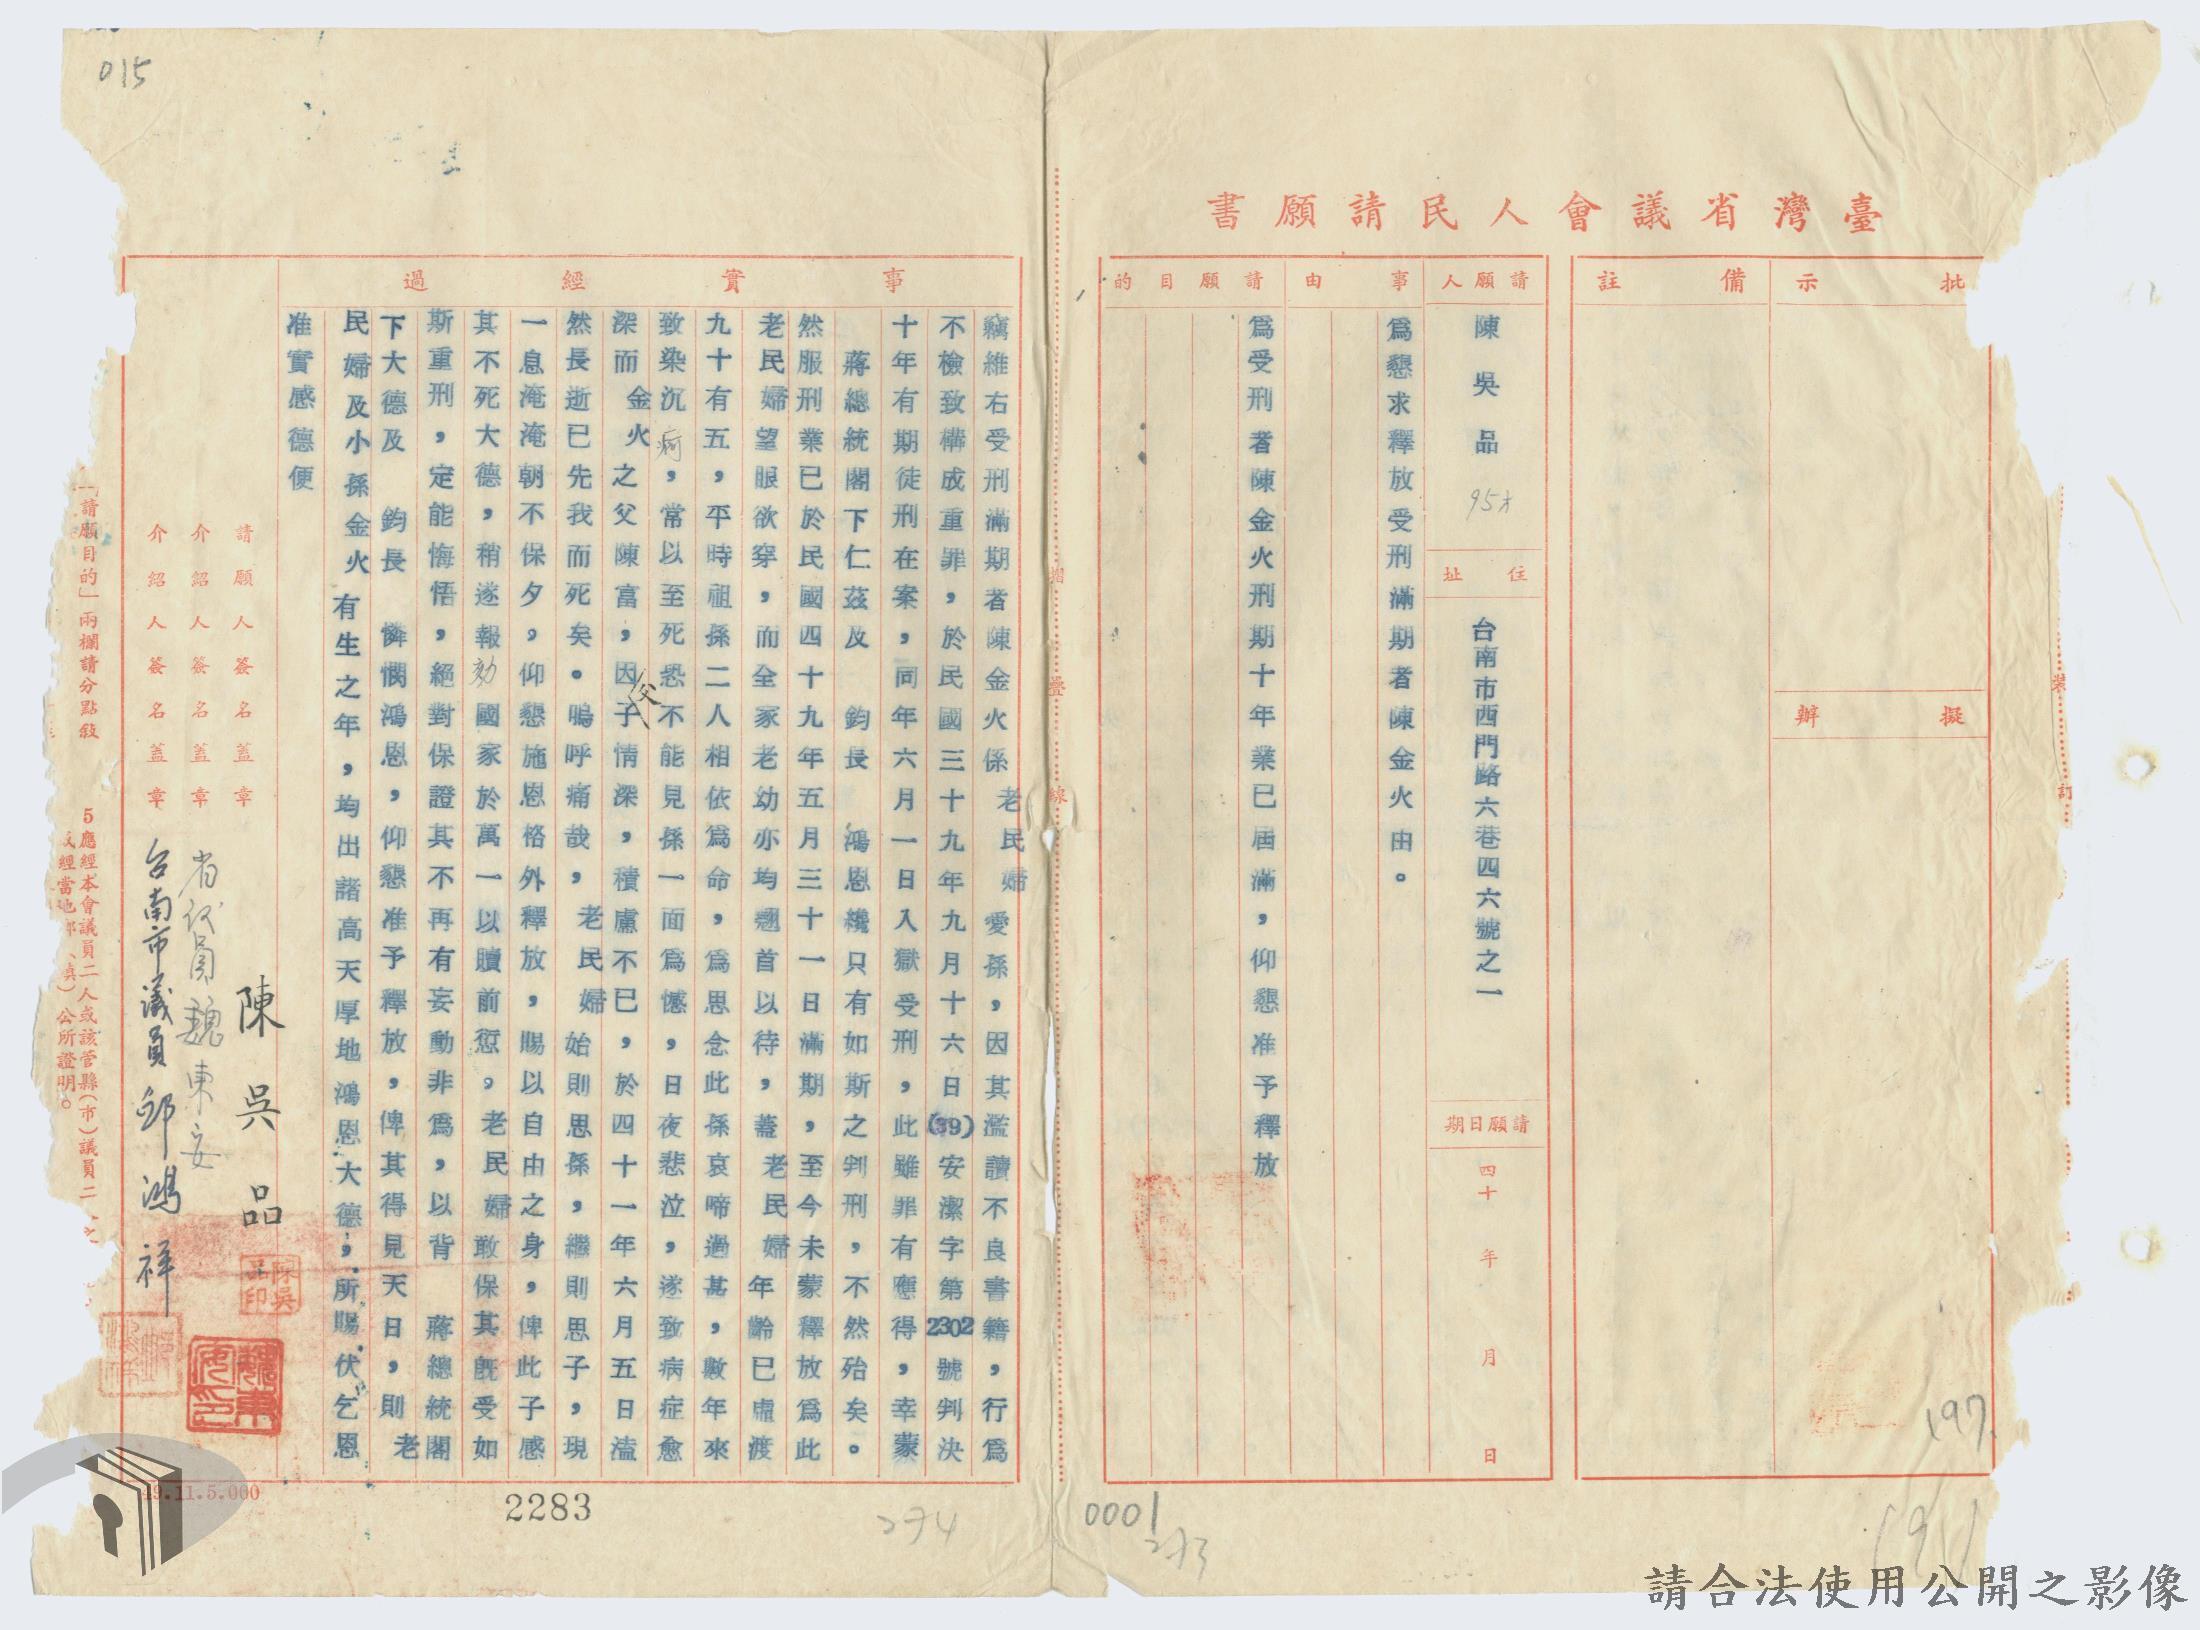 015
臺灣省議會人民請願書
批示
備註
擬辦
請願人
陳吳品 95才
住址
台南市西門路六巷四六號之一
請願日期
四十年月日
事由
爲懇求釋放受刑滿期者陳金火由。
請願目的
爲受刑者陳金火刑期十年業已屆滿，仰懇准予釋放
裝
訂
摺
疊
線
事實經過
竊維右受刑滿期者陳金火係老民婦愛孫，因其濫讀不良書籍，行爲
不檢致構成重罪，於民國三十九年九月十六日(39)安潔字第2302號判決
十年有期徒刑在案，同年六月一日入獄受刑，此雖罪有應得，幸蒙
蔣總統閣下仁茲及 鈞長 鴻恩纔只有如斯之判刑，不然殆矣。
然服刑業已於民國四十九年五月三十一日滿期，至今未蒙釋放爲此
老民婦望眼欲穿，而全家老幼亦均翹首以待，蓋老民婦年齡已虛渡
九十有五，平時祖孫二人相依爲命，爲思念此孫哀啼過甚，數年來
致染沉疴，常以至死恐不能見孫一面爲憾，日夜悲泣，遂致病症愈
深而金火之父陳富，因父子情深，積慮不已，於四十一年六月五日溘
然長逝已先我而死矣。嗚呼痛哉，老民婦始則思孫，繼則思子，現
一息淹淹朝不保夕，仰懇施恩格外釋放，賜以自由之身，俾此子感
其不死大德，稍遂報効國家於萬一以贖前愆。老民婦敢保其旣受如
斯重刑，定能悔悟，絕對保證其不再有妄動非爲，以背 蔣總統閣
下大德及 鈞長 憐憫鴻恩，仰懇准予釋放，俾其得見天日，則老
民婦及小孫金火有生之年，均出諸高天厚地鴻恩大德，所賜伏乞恩
准實感德便
請願人簽名蓋章
陳吳品
陳吳品印
介紹人簽名蓋章
省議員魏東安
介紹人簽名蓋章
台南市議員邱鴻祥
「請願目的」兩欄請分點敘
5應經本會議員二人或該管縣（市）議員二
公所證明。
49.11.5.000
2283
274
0001
273
197
191
請合法使用公開之影像